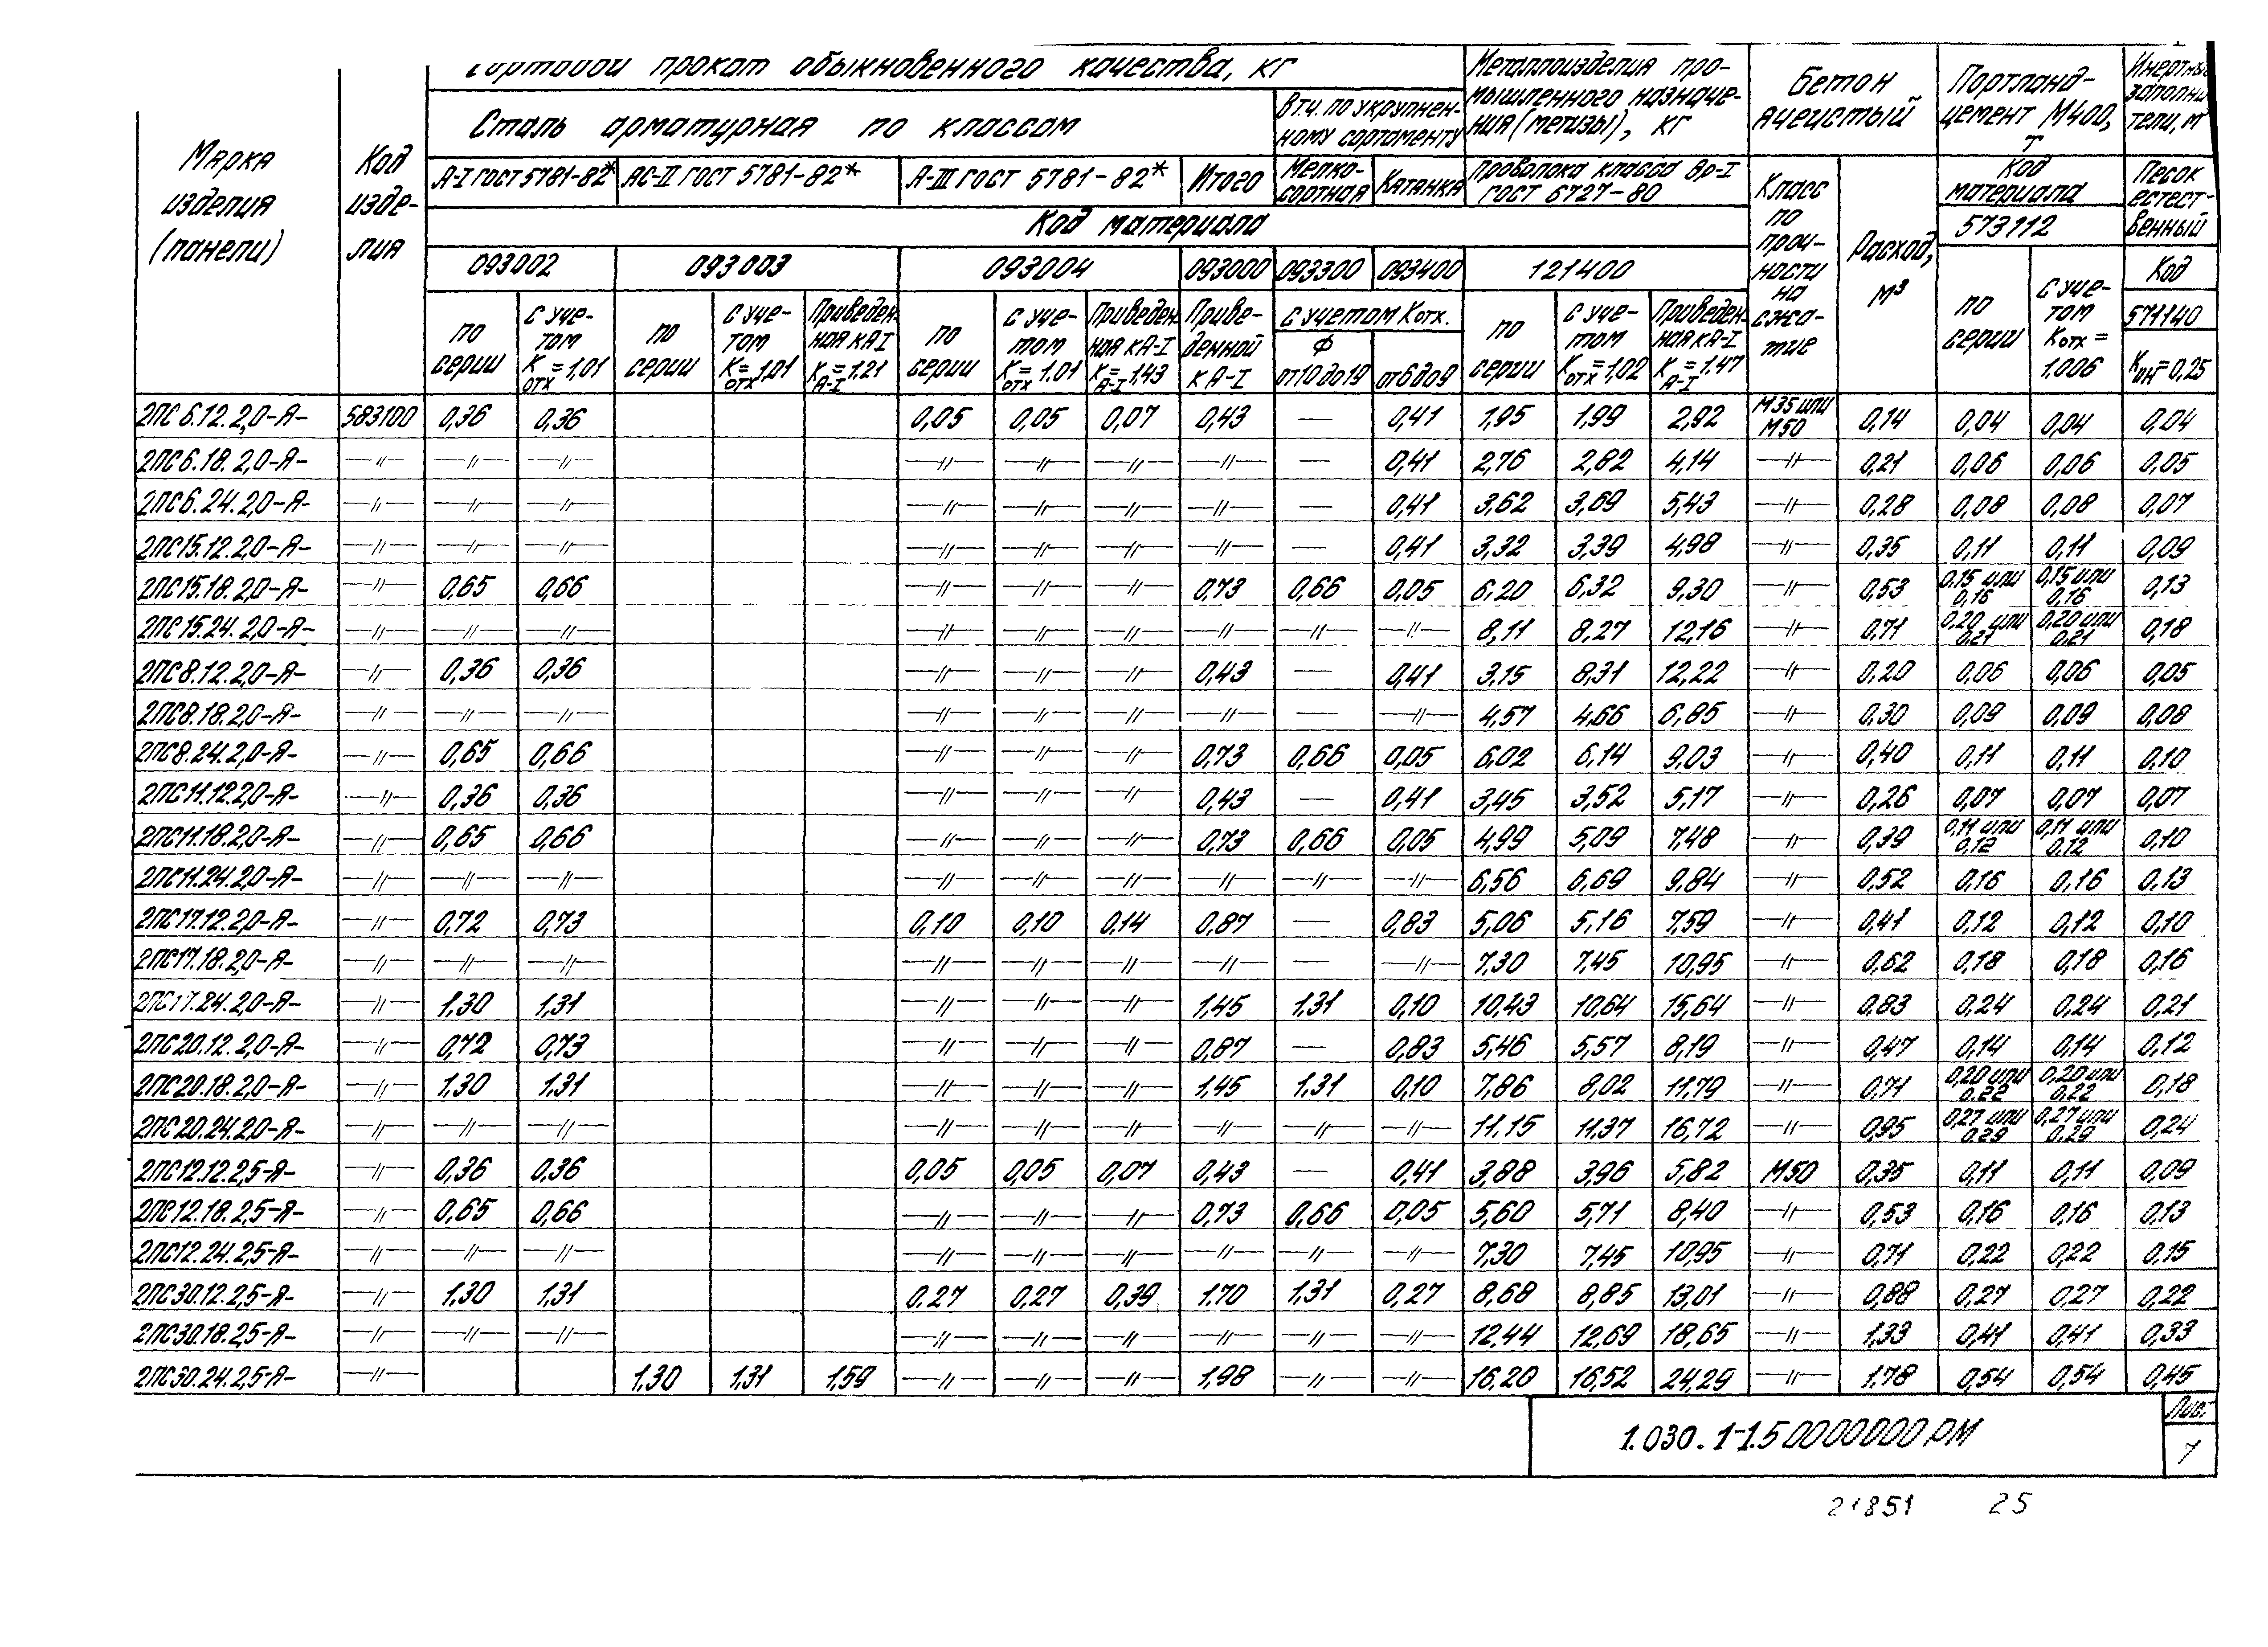 Сортовой прокат обыкновенного качества, кг
Металлоизделия про-
мышленного назначе-
ния (метизы), кг
Бетон
ячеистый
Портланд-
цемент М400,
т
Инертные
заполни
тели, м³
Сталь арматурная по классам
В т.ч. по укрупнен-
ному сортаменту
Марка
изделия
(панели)
Код
изде-
лия
А-I ГОСТ 5781-82*
АС-II ГОСТ 5781-82*
А-III ГОСТ 5781-82*
Итого
Мелко-
сортная
Катанка
Проволока класса Вр-I
ГОСТ 6727-80
Класс
по
проч-
ности
на
сжа-
тие
Расход,
м³
Код
материала
573112
Песок
естест-
венный
Код материала
093002
093003
093004
093000
093300
093400
121400
Код
571140
по
серии
с уче-
том
Котх=1,01
по
серии
с уче-
том
Котх=1,01
Приведен-
ная к АI
КА-I=1.21
по
серии
с уче-
том
Котх=1.01
Приведен
ная к А-I
КА-I=1.43
Приве-
денной
к А-I
с учетом Котх.
Ф
от 10 до 19
от 6 до 9
по
серии
с уче-
том
Котх=1,02
Приведен-
ная к А-I
КА-I=1.47
по
серии
с уче-
том
Котх=
1,006
Кин=0,25
2ПС 6.12.2,0-Я- 583100 0,36 0,36 0,05 0,05 0,07 0,43 — 0,41 1,95 1,99 2,92 М35 или М50 0,14 0,04 0,04 0,04
2ПС6.18.2,0-Я- —〃— —〃— —〃— —〃— —〃— —〃— —〃— — 0,41 2,76 2,82 4,14 —〃— 0,21 0,06 0,06 0,05
2ПС6.24.2,0-Я- —〃— —〃— —〃— —〃— —〃— —〃— —〃— — 0,41 3,62 3,69 5,43 —〃— 0,28 0,08 0,08 0,07
2ПС15.12.2,0-Я- —〃— —〃— —〃— —〃— —〃— —〃— —〃— — 0,41 3,32 3,39 4,98 —〃— 0,35 0,11 0,11 0,09
2ПС15.18.2,0-Я- —〃— 0,65 0,66 —〃— —〃— —〃— 0,73 0,66 0,05 6,20 6,32 9,30 —〃— 0,53 0,15 или 0,16 0,15 или 0,16 0,13
2ПС15.24.2,0-Я- —〃— —〃— —〃— —〃— —〃— —〃— —〃— —〃— —〃— 8,11 8,27 12,16 —〃— 0,71 0,20 или 0,21 0,20 или 0,21 0,18
2ПС8.12.2,0-Я- —〃— 0,36 0,36 —〃— —〃— —〃— 0,43 — 0,41 3,15 8,31 12,22 —〃— 0,20 0,06 0,06 0,05
2ПС8.18.2,0-Я- —〃— —〃— —〃— —〃— —〃— —〃— —〃— — —〃— 4,57 4,66 6,85 —〃— 0,30 0,09 0,09 0,08
2ПС8.24.2,0-Я- —〃— 0,65 0,66 —〃— —〃— —〃— 0,73 0,66 0,05 6,02 6,14 9,03 —〃— 0,40 0,11 0,11 0,10
2ПС11.12.2,0-Я- —〃— 0,36 0,36 —〃— —〃— —〃— 0,43 — 0,41 3,45 3,52 5,17 —〃— 0,26 0,07 0,07 0,07
2ПС11.18.2,0-Я- —〃— 0,65 0,66 —〃— —〃— —〃— 0,73 0,66 0,05 4,99 5,09 7,48 —〃— 0,39 0,11 или 0,12 0,11 или 0,12 0,10
2ПС11.24.2,0-Я- —〃— —〃— —〃— —〃— —〃— —〃— —〃— —〃— —〃— 6,56 6,69 9,84 —〃— 0,52 0,16 0,16 0,13
2ПС17.12.2,0-Я- —〃— 0,72 0,73 0,10 0,10 0,14 0,87 — 0,83 5,06 5,16 7,59 —〃— 0,41 0,12 0,12 0,10
2ПС17.18.2,0-Я- —〃— —〃— —〃— —〃— —〃— —〃— —〃— — —〃— 7,30 7,45 10,95 —〃— 0,62 0,18 0,18 0,16
2ПС17.24.2,0-Я- —〃— 1,30 1,31 —〃— —〃— —〃— 1,45 1,31 0,10 10,43 10,64 15,64 —〃— 0,83 0,24 0,24 0,21
2ПС20.12.2,0-Я- —〃— 0,72 0,73 —〃— —〃— —〃— 0,87 — 0,83 5,46 5,57 8,19 —〃— 0,47 0,14 0,14 0,12
2ПС20.18.2,0-Я- —〃— 1,30 1,31 —〃— —〃— —〃— 1,45 1,31 0,10 7,86 8,02 11,79 —〃— 0,71 0,20 или 0,22 0,20 или 0,22 0,18
2ПС20.24.2,0-Я- —〃— —〃— —〃— —〃— —〃— —〃— —〃— —〃— —〃— 11.15 11,37 16,72 —〃— 0,95 0,27 или 0,29 0,27 или 0,29 0,24
2ПС12.12.2,5-Я- —〃— 0,36 0,36 0,05 0,05 0,07 0,43 — 0,41 3,88 3,96 5,82 М50 0,35 0,11 0,11 0,09
2ПС12.18.2,5-Я- —〃— 0,65 0,66 —〃— —〃— —〃— 0,73 0,66 0,05 5,60 5,71 8,40 —〃— 0,53 0,16 0,16 0,13
2ПС12.24.2,5-Я- —〃— —〃— —〃— —〃— —〃— —〃— —〃— —〃— —〃— 7,30 7,45 10,95 —〃— 0,71 0,22 0,22 0,15
2ПС30.12.2,5-Я- —〃— 1,30 1,31 0,27 0,27 0,39 1,70 1,31 0,27 8,68 8,85 13,01 —〃— 0,88 0,27 0,27 0,22
2ПС30.18.2,5-Я- —〃— —〃— —〃— —〃— —〃— —〃— —〃— —〃— —〃— 12,44 12,69 18,65 —〃— 1,33 0,41 0,41 0,33
2ПС30.24.2,5-Я- —〃— 1,30 1,31 1,59 —〃— —〃— —〃— 1,98 —〃— —〃— 16,20 16,52 24,29 —〃— 1,78 0,54 0,54 0,45
1.030.1-1.5 0000000 РМ
Лист
7
21851 25